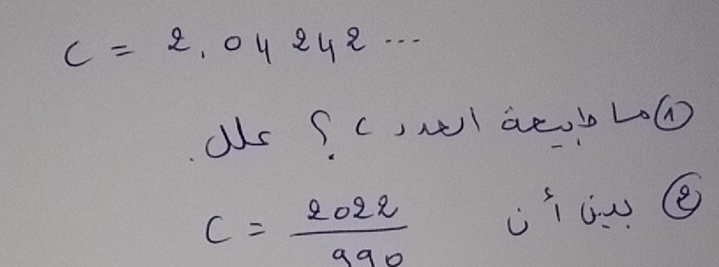 C = 2,04242...
① ما طبيعة العدد C ؟ علل.
② بين أن C = 2022/990